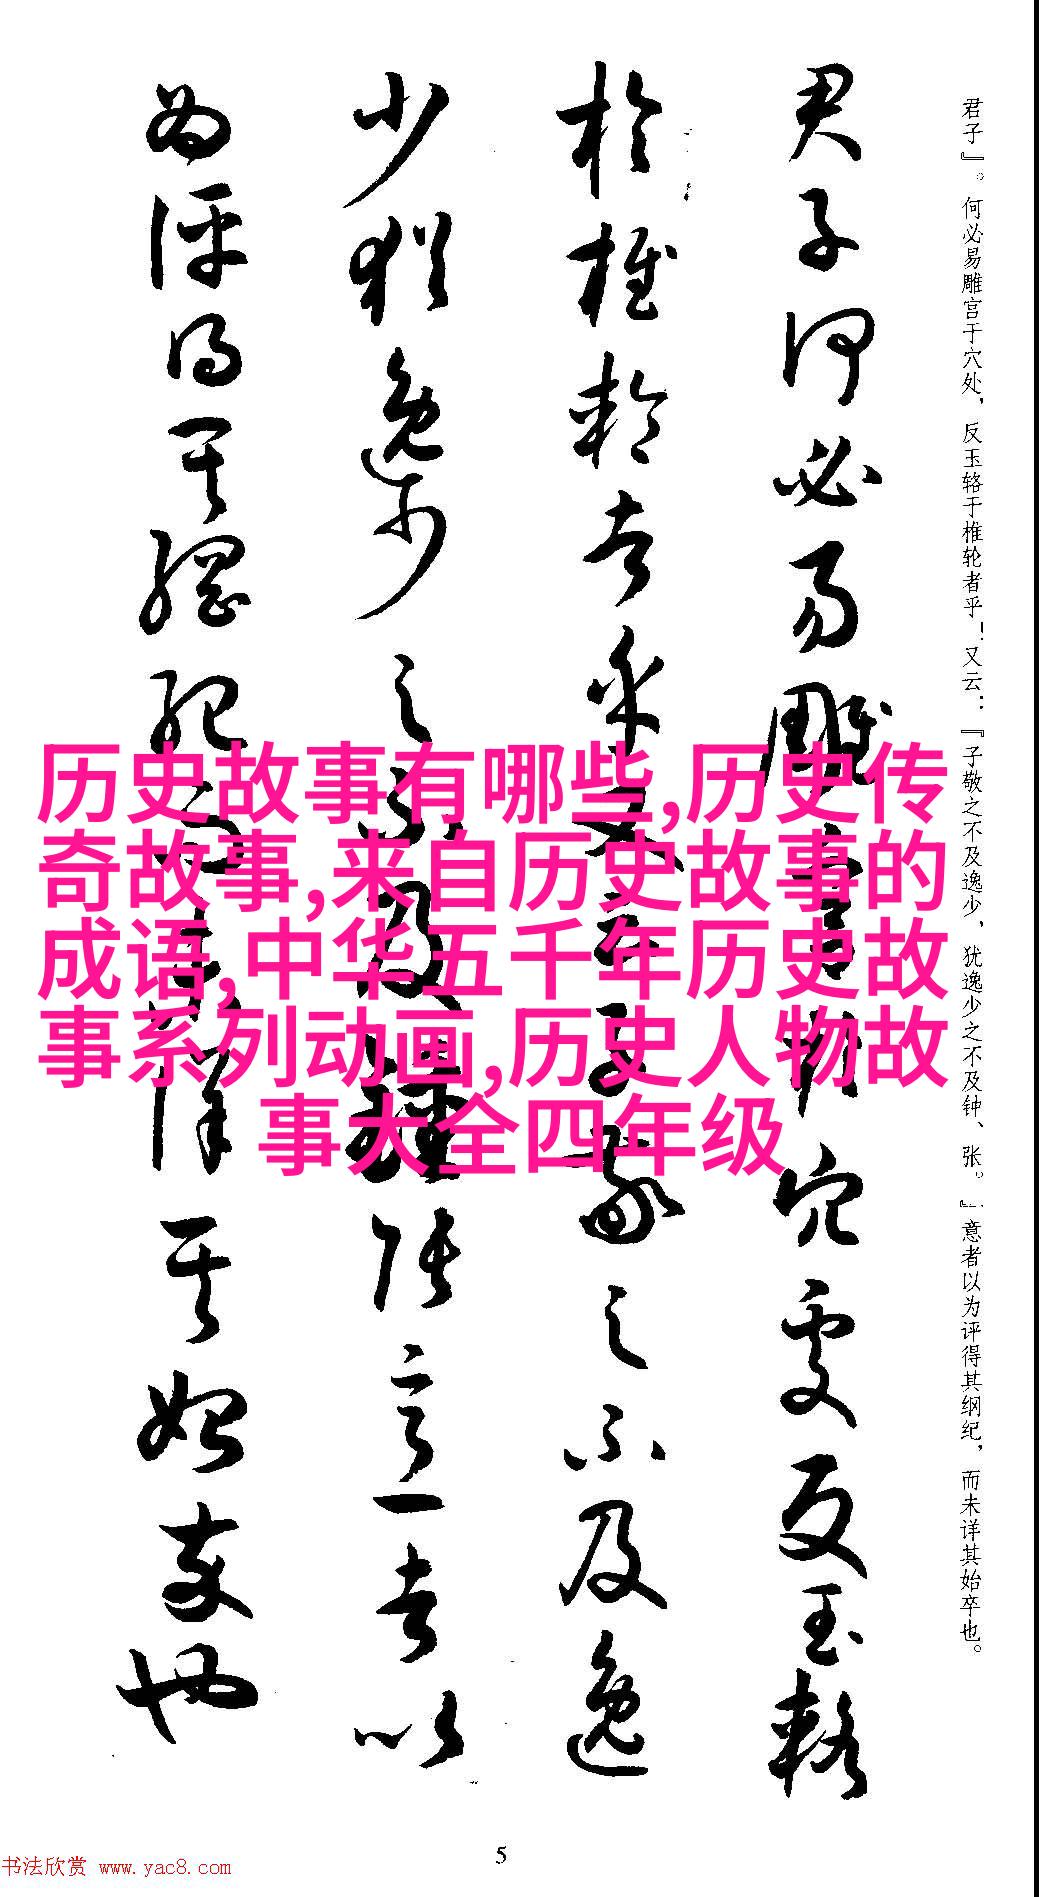 君子』。何必易雕宫于穴处，反玉辂于椎轮者乎！又云：『子敬之不及逸少，犹逸少之不及钟、张。』意者以为评得其纲纪，而未详其始卒也。
君子何必易雕宫於穴处反玉辂
於椎轮者乎又云子敬之不及逸
少犹逸少之不及钟张意者以
为评得其纲纪而未详其始卒也
历史故事有哪些,历史传
奇故事,来自历史故事的
成语,中华五千年历史故
事系列动画,历史人物故
事大全四年级
5
书法欣赏 www.yac8.com